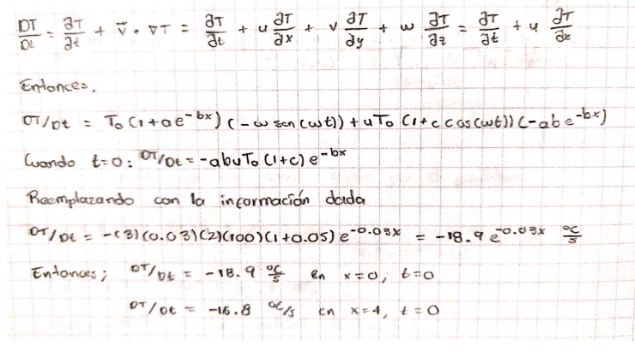 DT/Dt = ∂T/∂t + v̄ · ∇T = ∂T/∂t + u ∂T/∂x + v ∂T/∂y + w ∂T/∂z = ∂T/∂t + u ∂T/∂x
Entonces,
DT/Dt = T₀ (1+ae^-bx) (-ω sen(ωt)) + uT₀ (1+c cos(ωt)) (-abe^-bx)
Cuando t=0: DT/Dt = -abuT₀ (1+c) e^-bx
Reemplazando con la información dada
DT/Dt = -(3)(0.03)(2)(100)(1+0.05) e^-0.03x = -18.9 e^-0.03x °C/s
Entonces; DT/Dt = -18.9 °C/s en x=0, t=0
DT/Dt = -16.8 °C/s en x=4, t=0